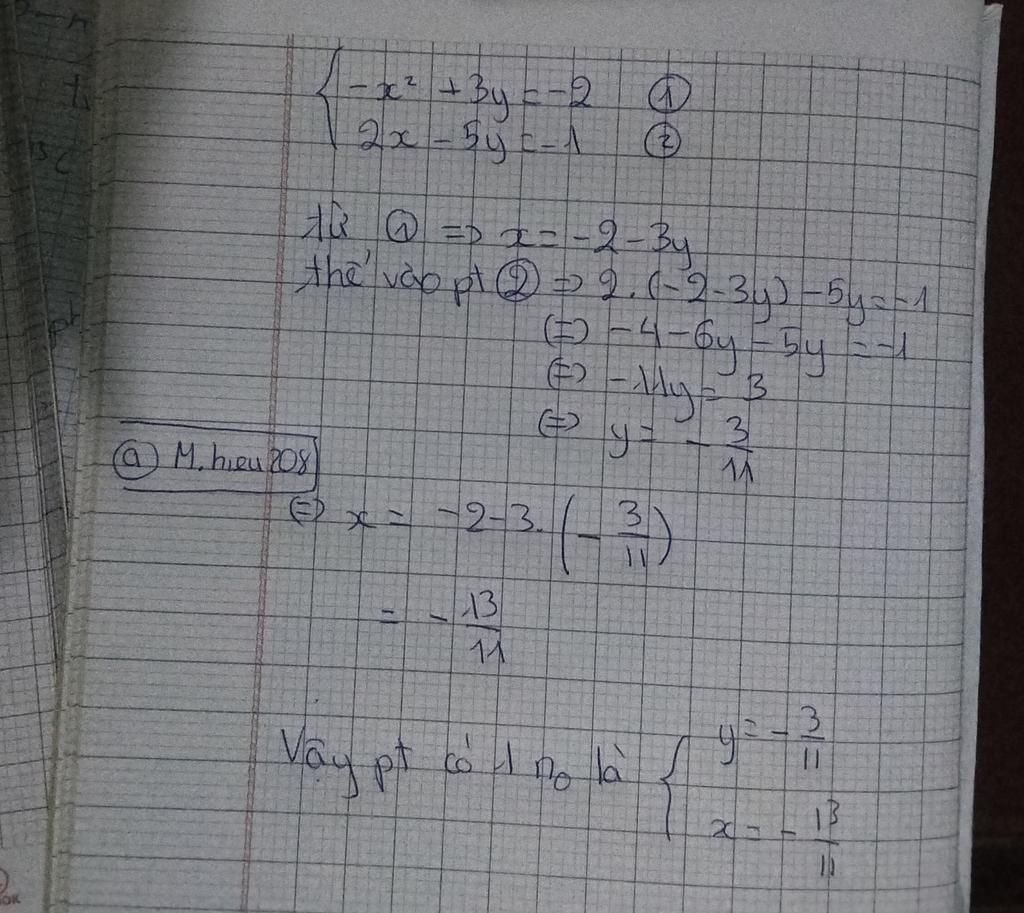 { -x² + 3y = -2 ①
2x - 5y = -1 ②
từ ① => x = -2 - 3y
thế vào pt ② => 2.(-2-3y) - 5y = -1
(=) -4 - 6y - 5y = -1
(=) -11y = 3
(=) y = - 3/11
@ M.hieu208
(=) x = -2 - 3.(- 3/11)
= - 13/11
Vậy pt có 1 n₀ là { y = - 3/11
x = - 13/11